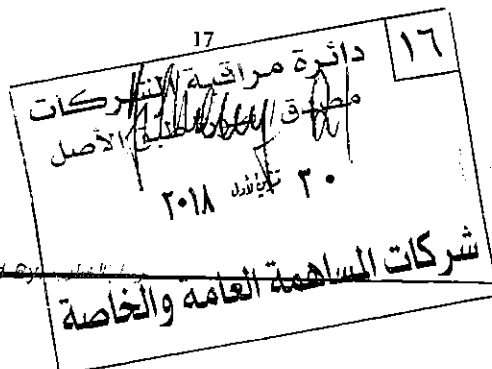 17
١٦
دائرة مراقبة الشركات
الأصل
٣٠ تشرين أول ٢٠١٨
شركات المساهمة العامة والخاصة